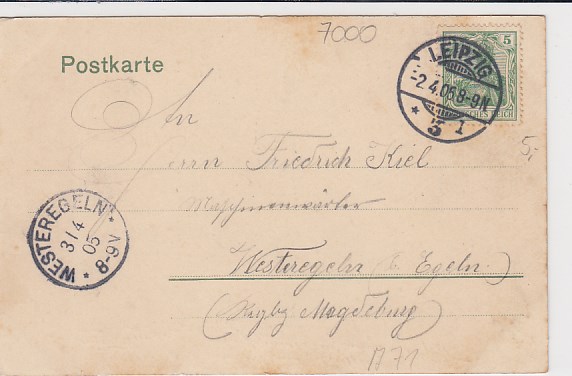 7000
Postkarte
LEIPZIG
-2.4.05 8-9N
* 3 1
5
DEUTSCHES REICH
5,-
An
Herrn Friedrich Kiel
Maschinenwärter
Westeregeln b. Egeln
(Rgbz Magdeburg)
WESTEREGELN
3/4
05
* 8-9V
M71